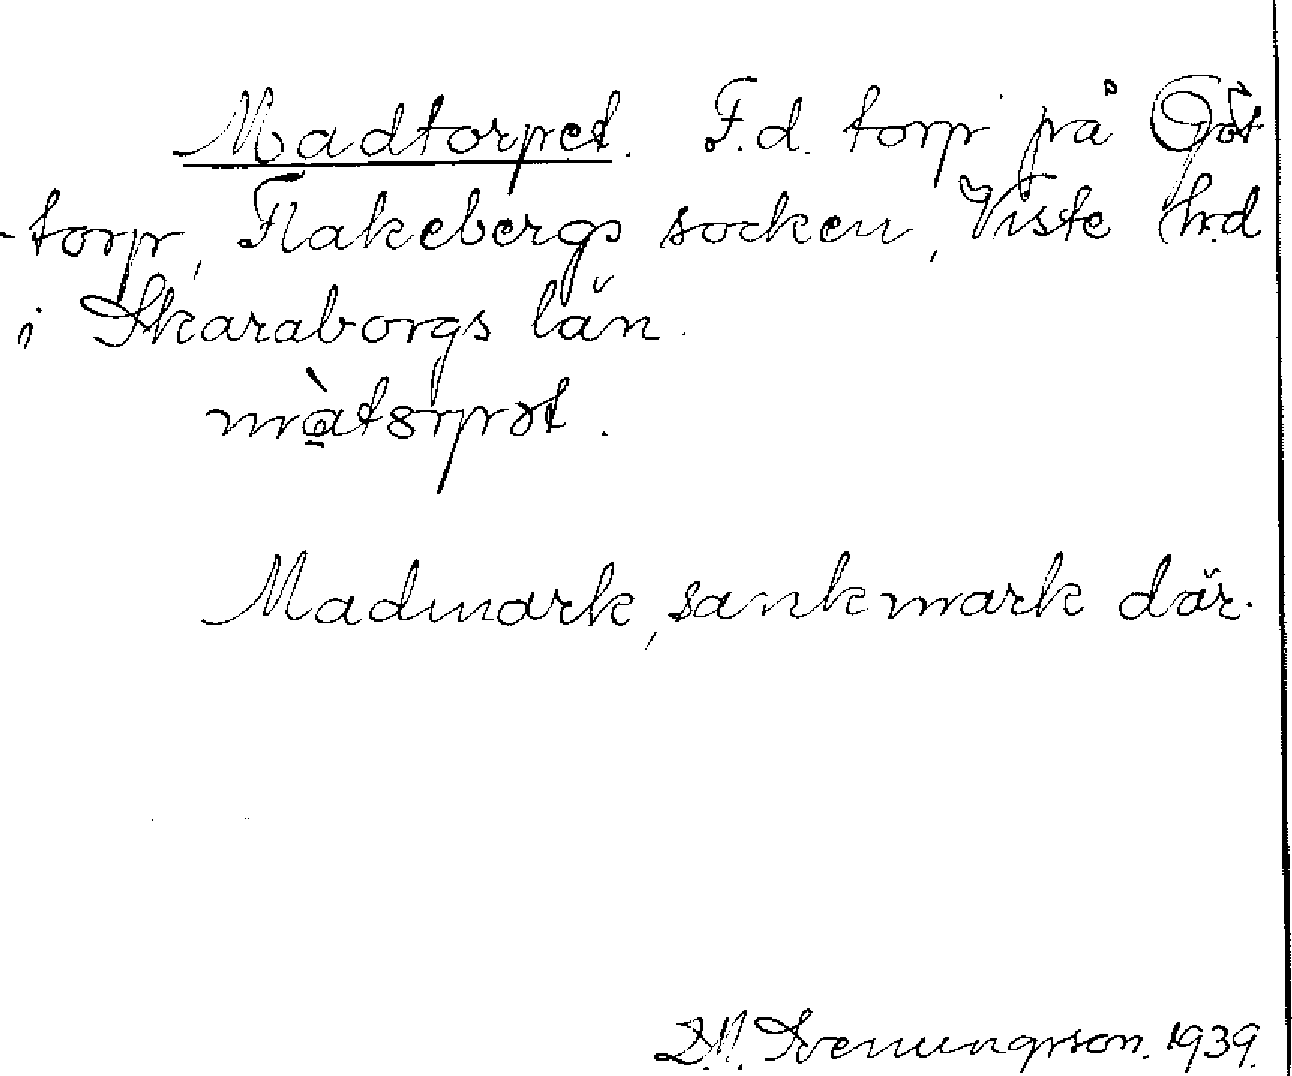 Madtorpet. F.d. torp på Göt
-torp, Flakebergs socken, Viste hd
i Skaraborgs län.
màtsrpət.
Madmark, sankmark där.
D.N. Svenungsson. 1939.